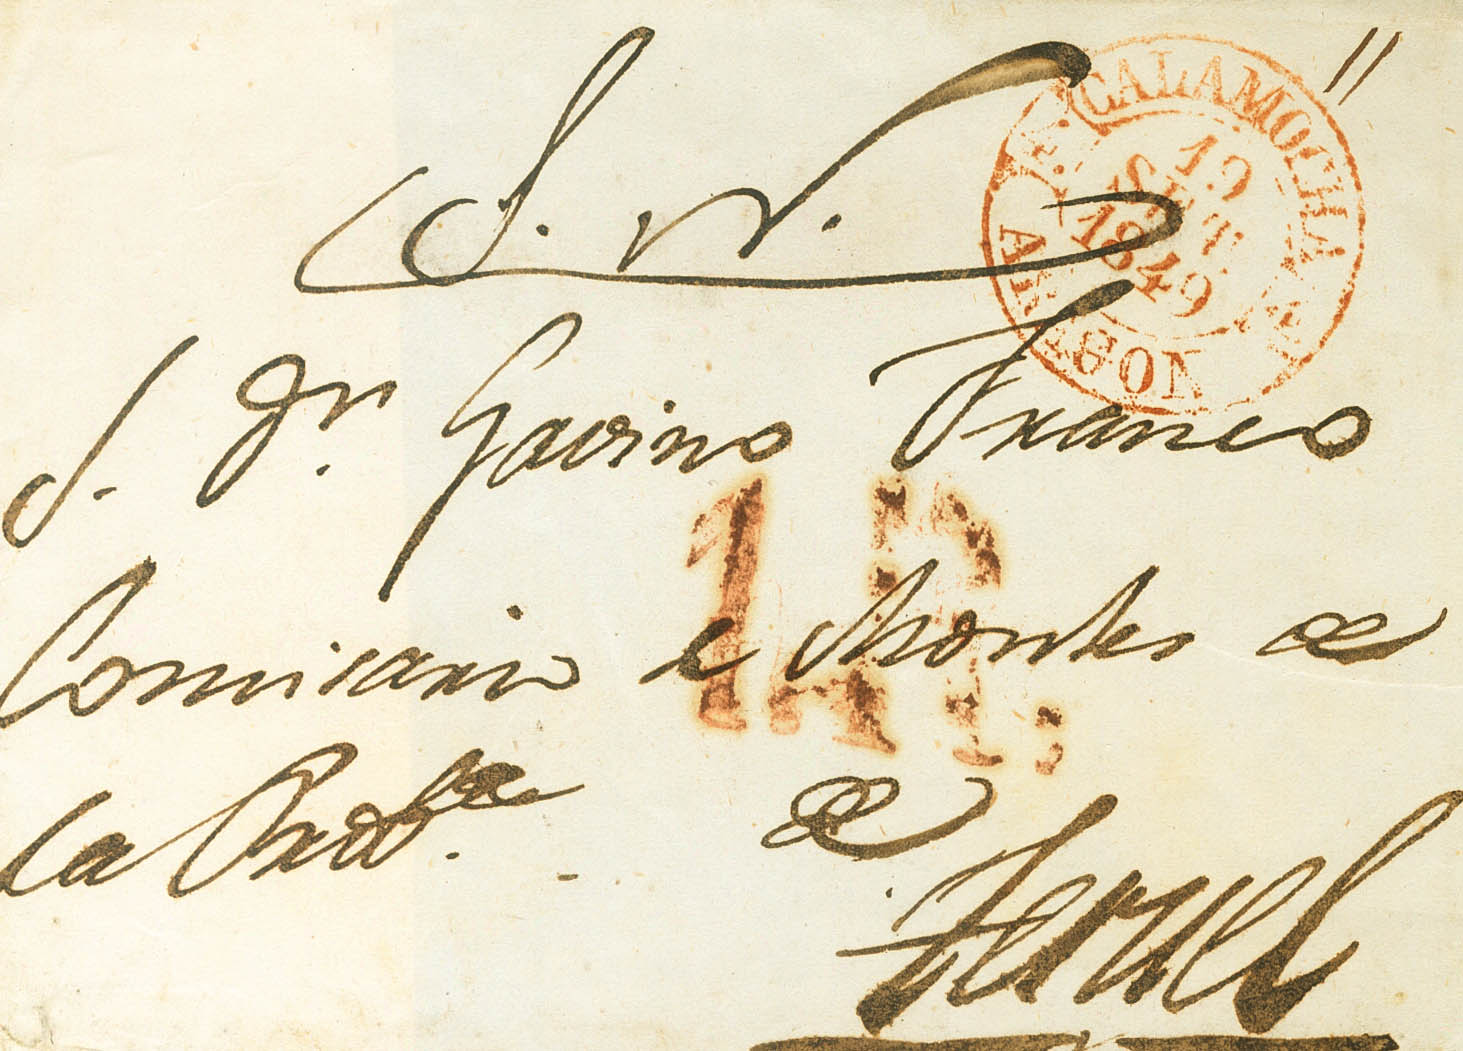 S. N.
CALAMOCHA
19
SET
1849
ARAGON
S. Dn. Gavino Franco
1R
Comisario de Montes de
la Prov.ca de
Teruel